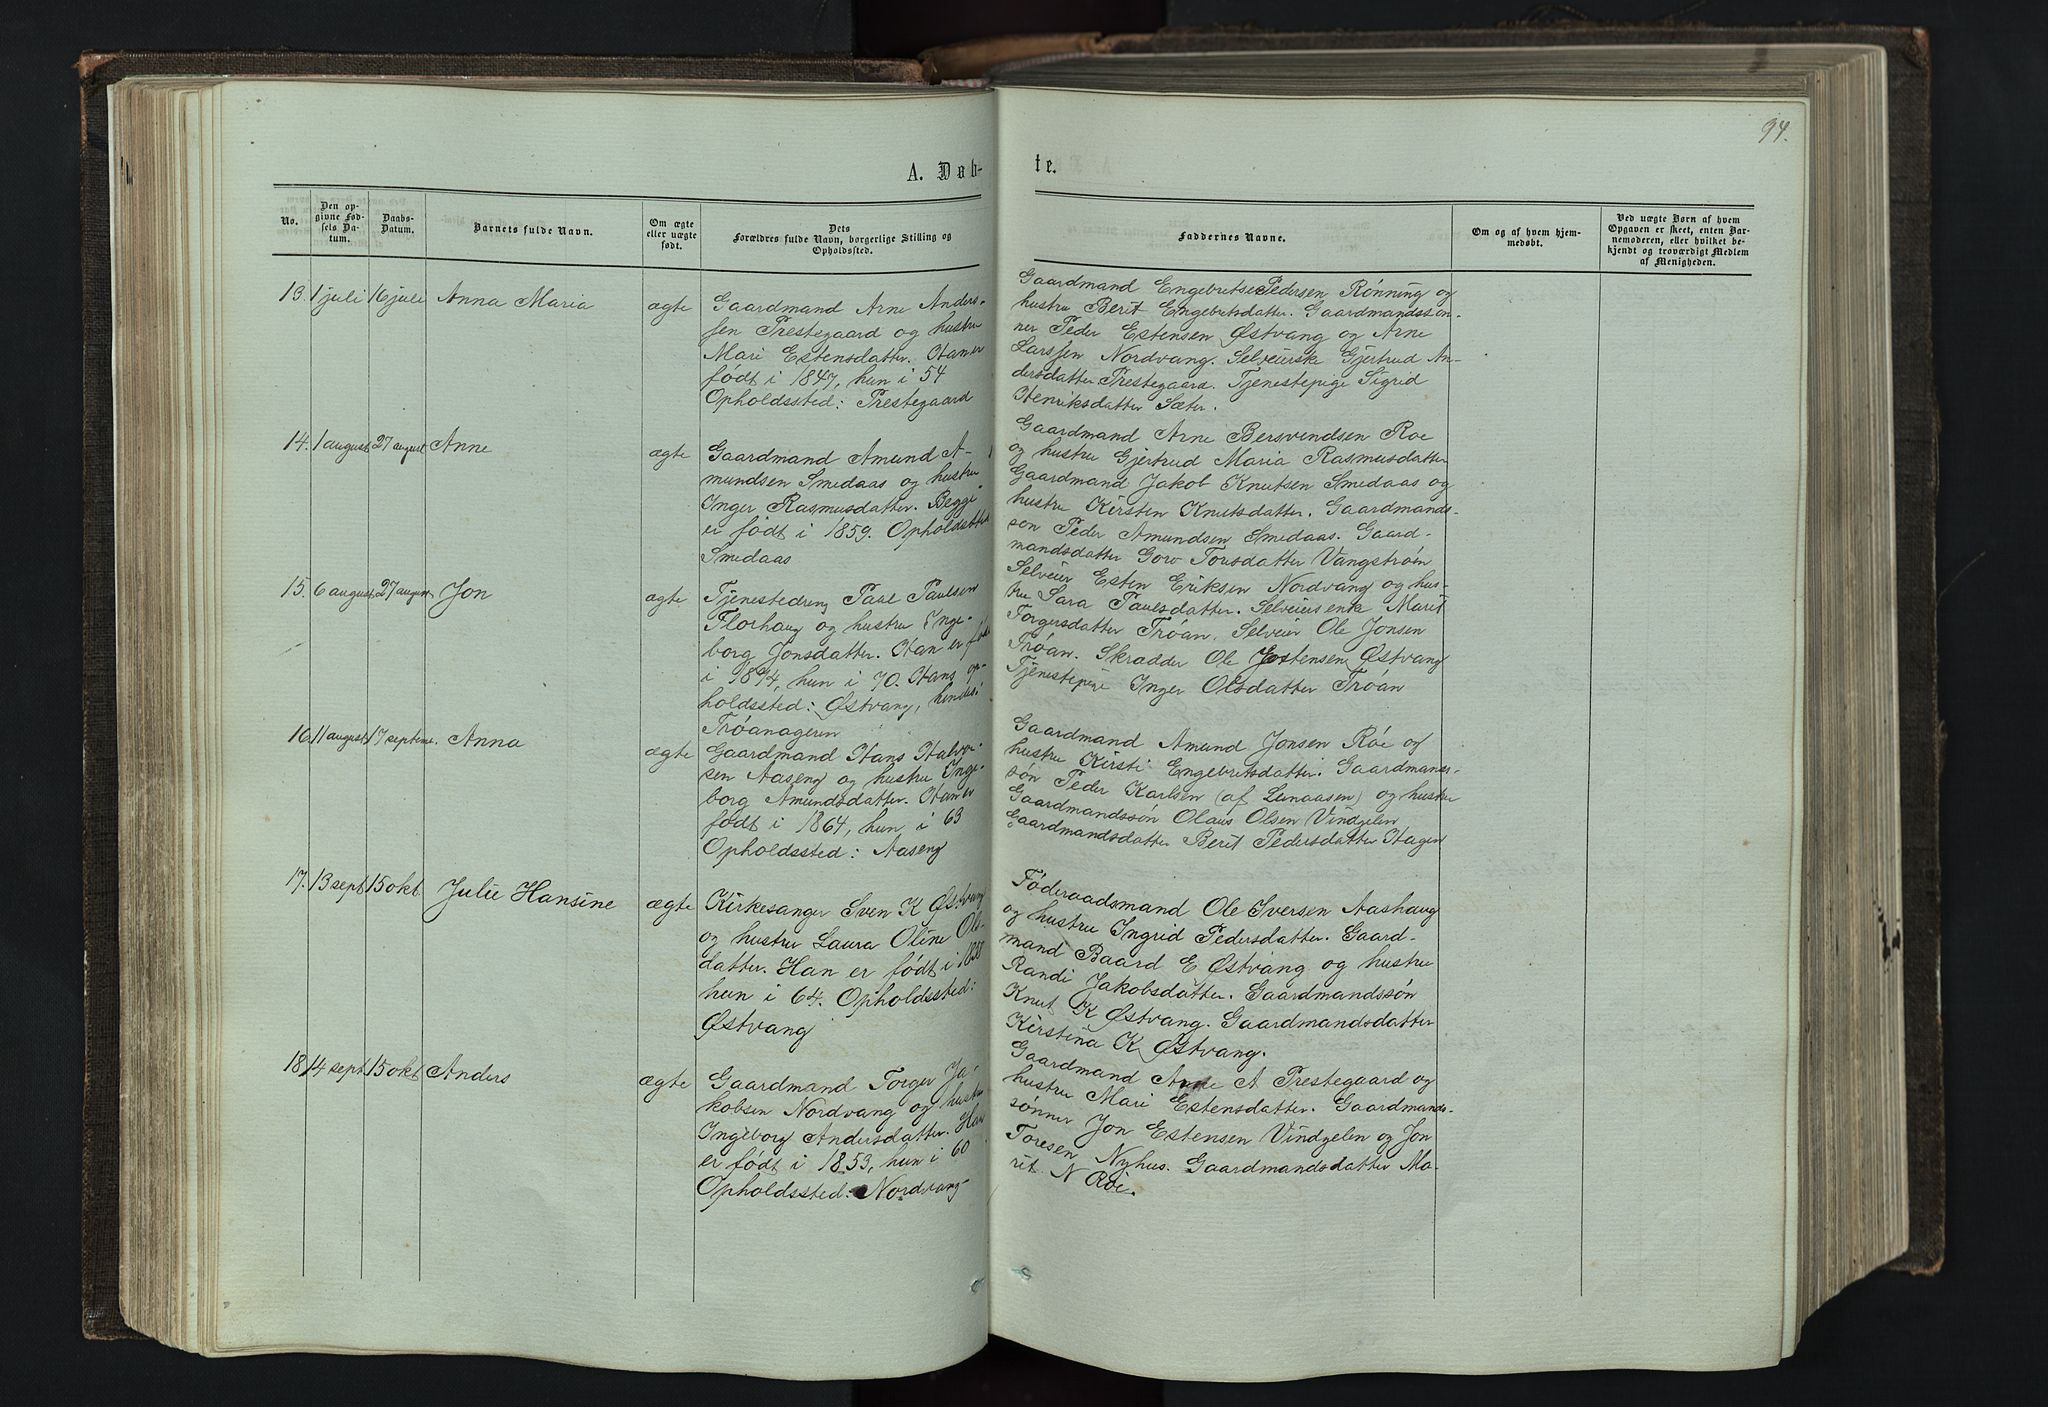 94.
A. Døb-
te.
No.
Den op-
givne Fød-
sels Da-
tum.
Daabs-
Datum.
Barnets fulde Navn.
Om ægte
eller uægte
født.
Dets
Forældres fulde Navn, borgerlige Stilling og
Opholdssted.
Faddernes Navne.
Om og af hvem hjem-
medøbt.
Ved uægte Børn af hvem
Opgaven er skeet, enten Bar-
nemoderen, eller hvilket be-
kjendt og troværdigt Medlem
af Menigheden.
13. 1 juli 16 juli Anna Maria ægte
Gaardmand Arne Anders-
sen Prestegaard og hustru
Mari Estensdatter. Han er
født i 1847, hun i 54
Opholdssted: Prestegaard
Gaardmand Engebret Pedersen Rønning og
hustru Berit Engebretsdatter. Gaardmandssøn-
ner Peder Estensen Østvang og Arne
Larssen Nordvang. Selveierske Gjertrud An-
dersdatter Prestegaard. Tjenestepige Sigrid
Henriksdatter Sæter.
14. 1 august 27 august Anne ægte
Gaardmand Amund A-
mundsen Smedaas og hustru
Inger Rasmusdatter. Begge
er født i 1859. Opholdssted
Smedaas
Gaardmand Arne Bersvendsen Roe
og hustru Gjertrud Maria Rasmusdatter
Gaardmand Jakob Knutsen Smedaas og
hustru Kirsten Knutsdatter. Gaardmands-
søn Peder Amundsen Smedaas. Gaard-
mandsdatter Goro Torsdatter Vangstrøen
15. 6 august 27 august Jon ægte
Tjenestedreng Paul Paulsen
Florhaug og hustru Inge-
borg Jonsdatter. Han er født
i 1874, hun i 70. Hans op-
holdssted: Østvang, hendes:
Trøanageren
Selveier Esten Eriksen Nordvang og hus-
tru Sara Paulsdatter. Selveierenke Marit
Torgersdatter Trøan. Selveier Ole Jonsen
Trøan. Skrædder Ole Jostensen Østvang
Tjenestepige Inger Olsdatter Trøan
16. 11 august 17 septemr. Anna ægte
Gaardmand Hans Halvor-
sen Aaseng og hustru Inge-
borg Amundsdatter. Han er
født i 1864, hun i 63
Opholdssted: Aaseng
Gaardmand Amund Jonsen Røe og
hustru Kirsti Engebretsdatter. Gaardmands-
søn Peder Karlsen (af Lunaasen) og hustru
Gaardmandssøn Olaus Olsen Vindgelen
Gaardmandsdatter Berit Pedersdatter Hagen
17. 13 sept 15 okt Julie Hansine ægte
Kirkesanger Sven K Østvang
og hustru Laura Oline Ols-
datter. Han er født i 1858
hun i 64. Opholdssted:
Østvang
Føderaadsmand Ole Iversen Aashaug
og hustru Ingrid Pedersdatter. Gaard-
mand Baard E Østvang og hustru
Randi Jakobsdatter. Gaardmandssøn
Knut K Østvang. Gaardmandsdatter
Kirstina K Østvang.
18. 14 sept 15 okt Anders ægte
Gaardmand Torger Ja-
kobsen Nordvang og hustru
Ingeborg Andersdatter. Han
er født i 1853, hun i 60
Opholdssted: Nordvang
Gaardmand Arne A Prestegaard og
hustru Mari Estensdatter. Gaardmands-
sønner Jon Estensen Vindgelen og Jon
Toresen Nyhus. Gaardmandsdatter Ma-
rit N Roe.